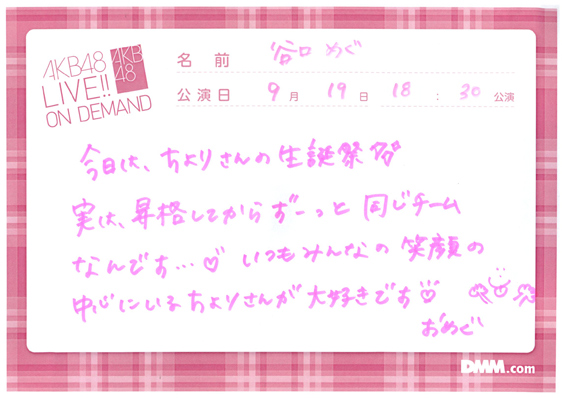 AKB48
LIVE!!
ON DEMAND
AKB
48
名 前 谷口 めぐ
公演日 9月 19日 18:30公演
今日は、ちよりさんの生誕祭
実は、昇格してからずーっと同じチーム
なんです…♡ いつもみんなの笑顔の
中心にいるちよりさんが大好きです♡
おめぐ
DMM.com